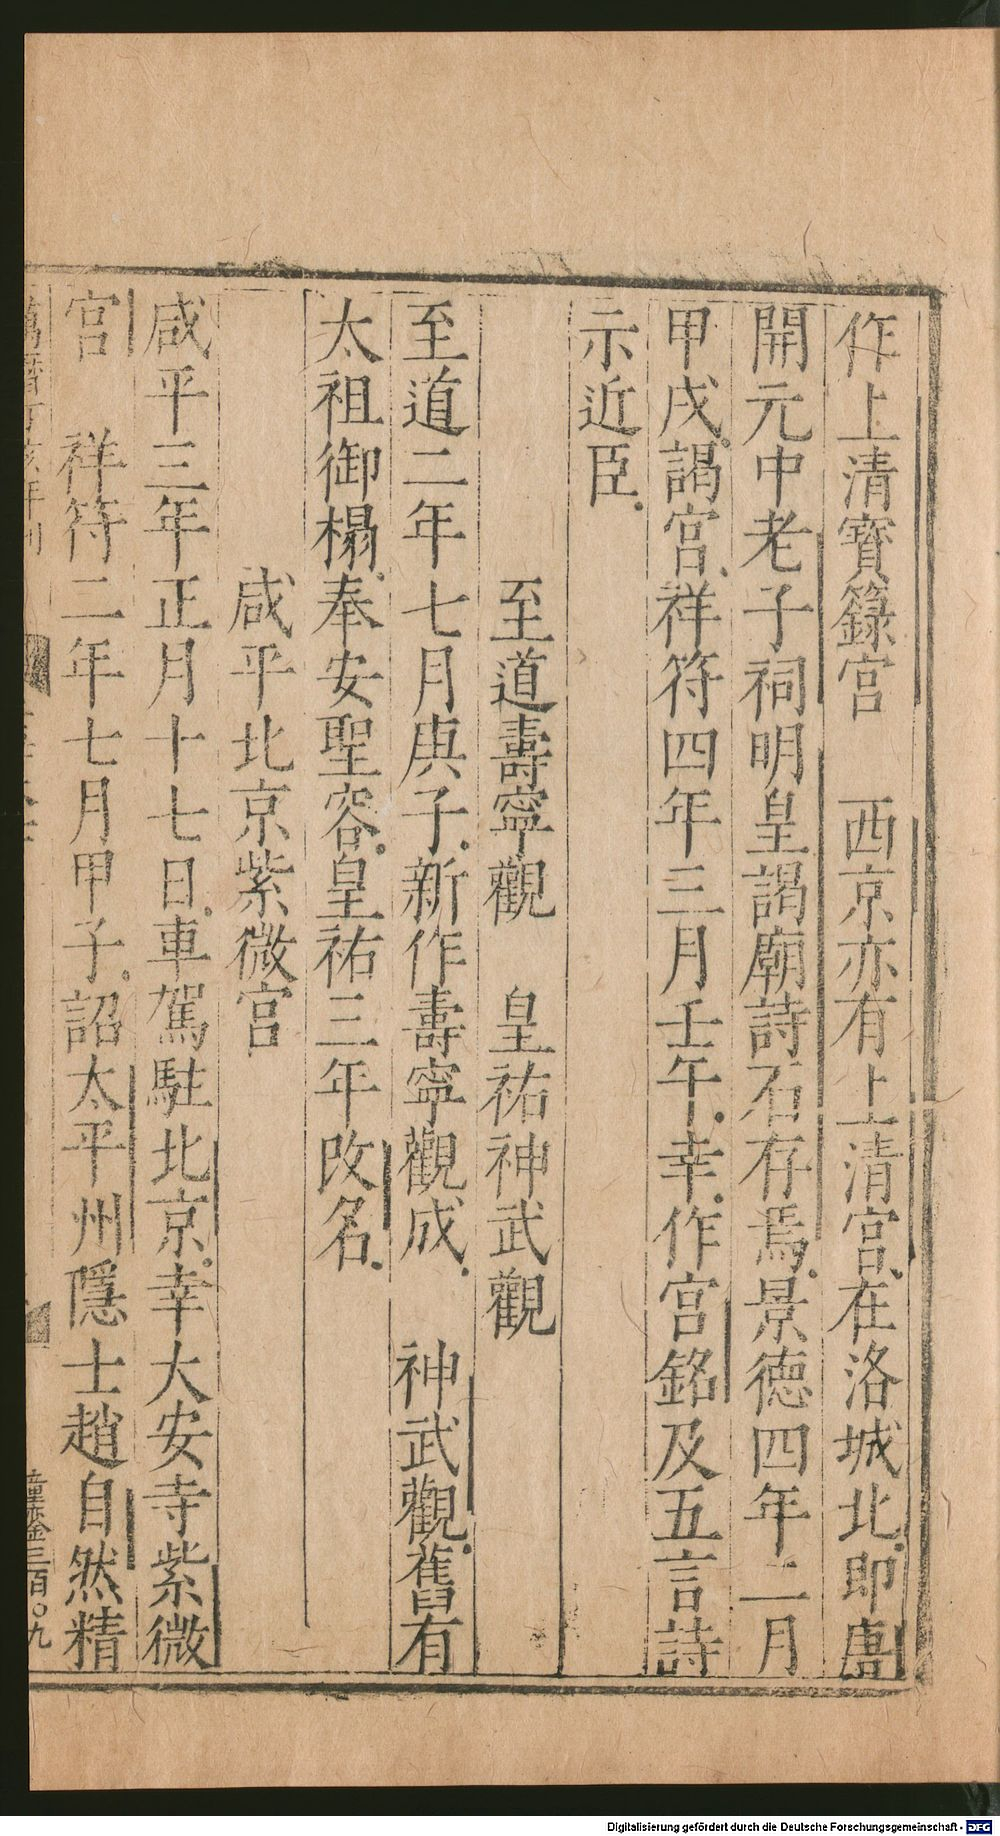 作上清寶籙宮　西京亦有上清宮在洛城北即唐
開元中老子祠明皇謁廟詩石存焉景德四年二月
甲戌謁宮祥符四年三月壬午幸作宮銘及五言詩
示近臣
至道壽寧觀　皇祐神武觀
至道二年七月庚子新作壽寧觀成　神武觀舊有
太祖御榻奉安聖容皇祐三年改名
咸平北京紫微宮
咸平三年正月十七日車駕駐北京幸大安寺紫微
宮　祥符二年七月甲子詔太平州隱士趙自然精
萬曆丁亥年刊
三百〇九
Digitalisierung gefördert durch die Deutsche Forschungsgemeinschaft - DFG